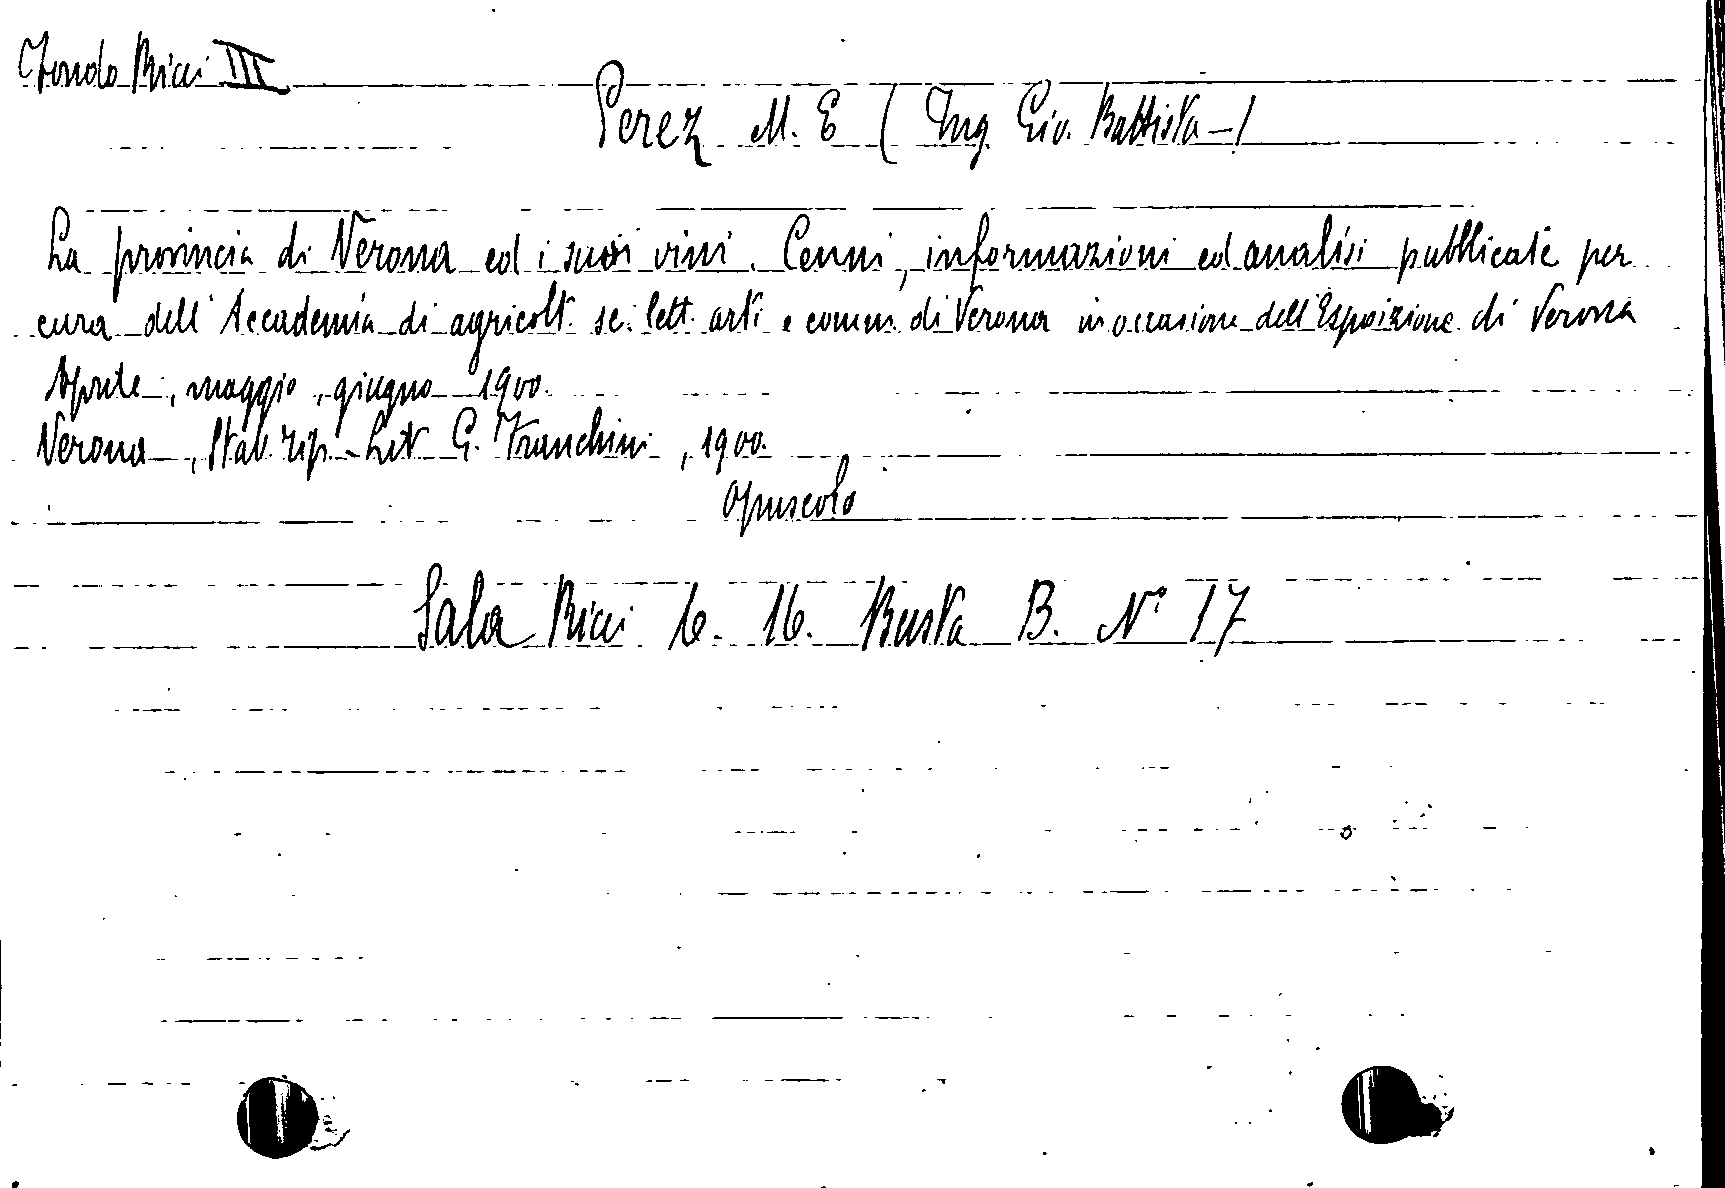 Fondo Ricci III
Perez M. E ( Ing. Gio. Battista - )
La provincia di Verona ed i suoi vini. Cenni, informazioni ed analisi pubblicate per
cura dell'Accademia di agricolt. sc. lett. arti e comm. di Verona in occasione dell'Esposizione di Verona
Aprile, maggio, giugno 1900.
Verona, Stab. Tip-Lit G. Franchini, 1900.
opuscolo
Sala Ricci 6. 16. Busta B. N° 17